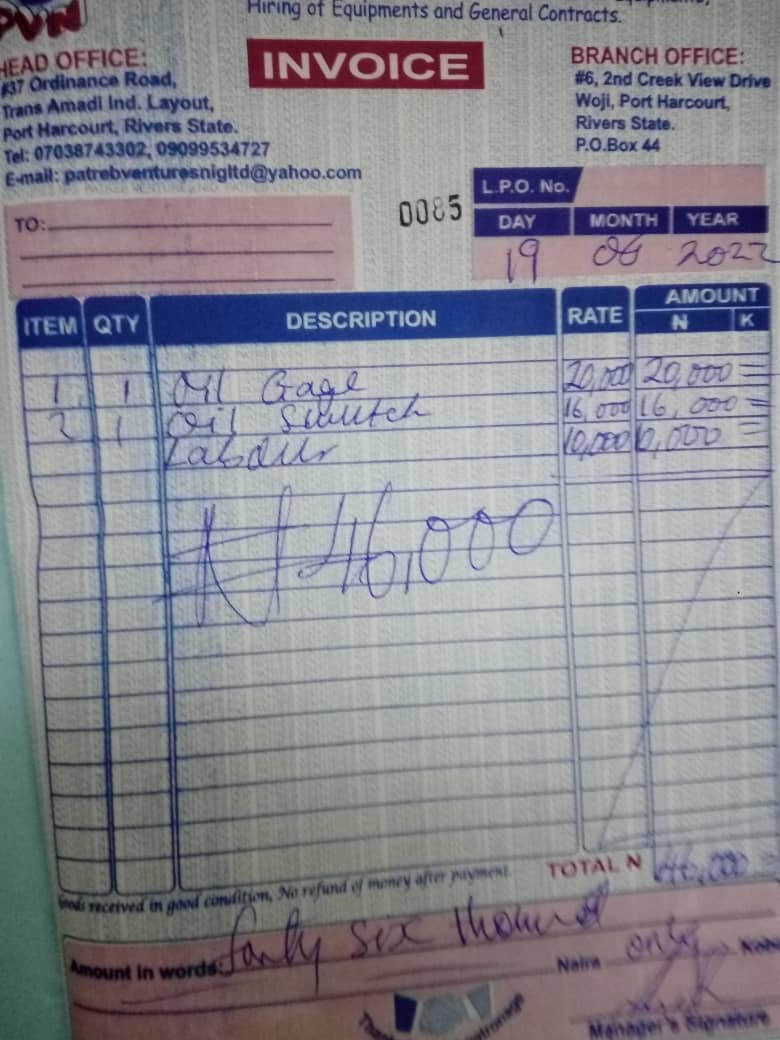 PVN
Hiring of Equipments and General Contracts.
HEAD OFFICE:
#37 Ordinance Road,
Trans Amadi Ind. Layout,
Port Harcourt, Rivers State.
Tel: 07038743302, 09099534727
E-mail: patrebventuresnigltd@yahoo.com
INVOICE
BRANCH OFFICE:
#6, 2nd Creek View Drive
Woji, Port Harcourt,
Rivers State.
P.O.Box 44
L.P.O. No.
0085
DAY MONTH YEAR
19 06 2022
TO:
ITEM QTY DESCRIPTION RATE AMOUNT
N K
1 1 Oil Gage 20,000 20,000 =
2 1 Oil Swutch 16,000 16,000 =
Labour 10,000 10,000 =
₦46,000
TOTAL N 46,000 =
Goods received in good condition, No refund of money after payment.
Amount in words: forty six thousand
Naira only Kobo
Manager's Signature